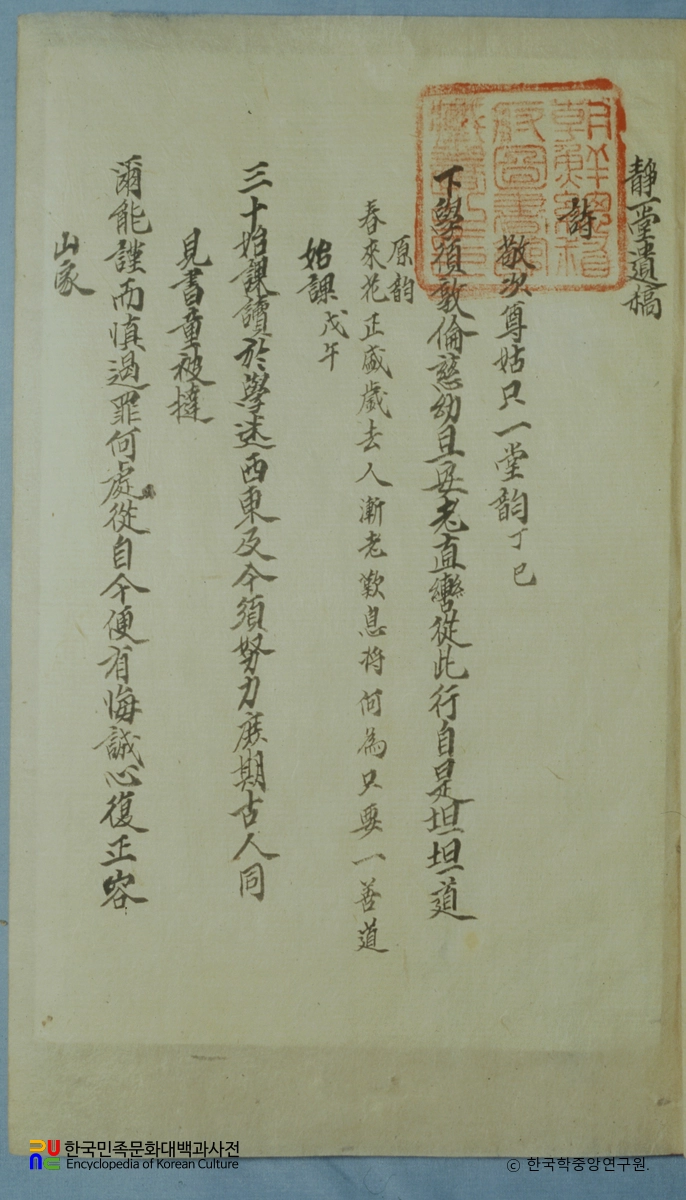 靜一堂遺稿
詩
敬次尊姑只一堂韵 丁巳
下學須敦倫慈幼且安老直轡從此行自是坦坦道
原韵
春來花正盛歲去人漸老歎息将何為只要一善道
始課 戊午
三十始課讀於學迷西東及今須努力庶期古人同
見書童被撻
爾能謹而慎過罪何處從自今便有悔誠心復正容
山家
朝鮮總督
府圖書館
藏書之印
한국민족문화대백과사전
Encyclopedia of Korean Culture
ⓒ 한국학중앙연구원.